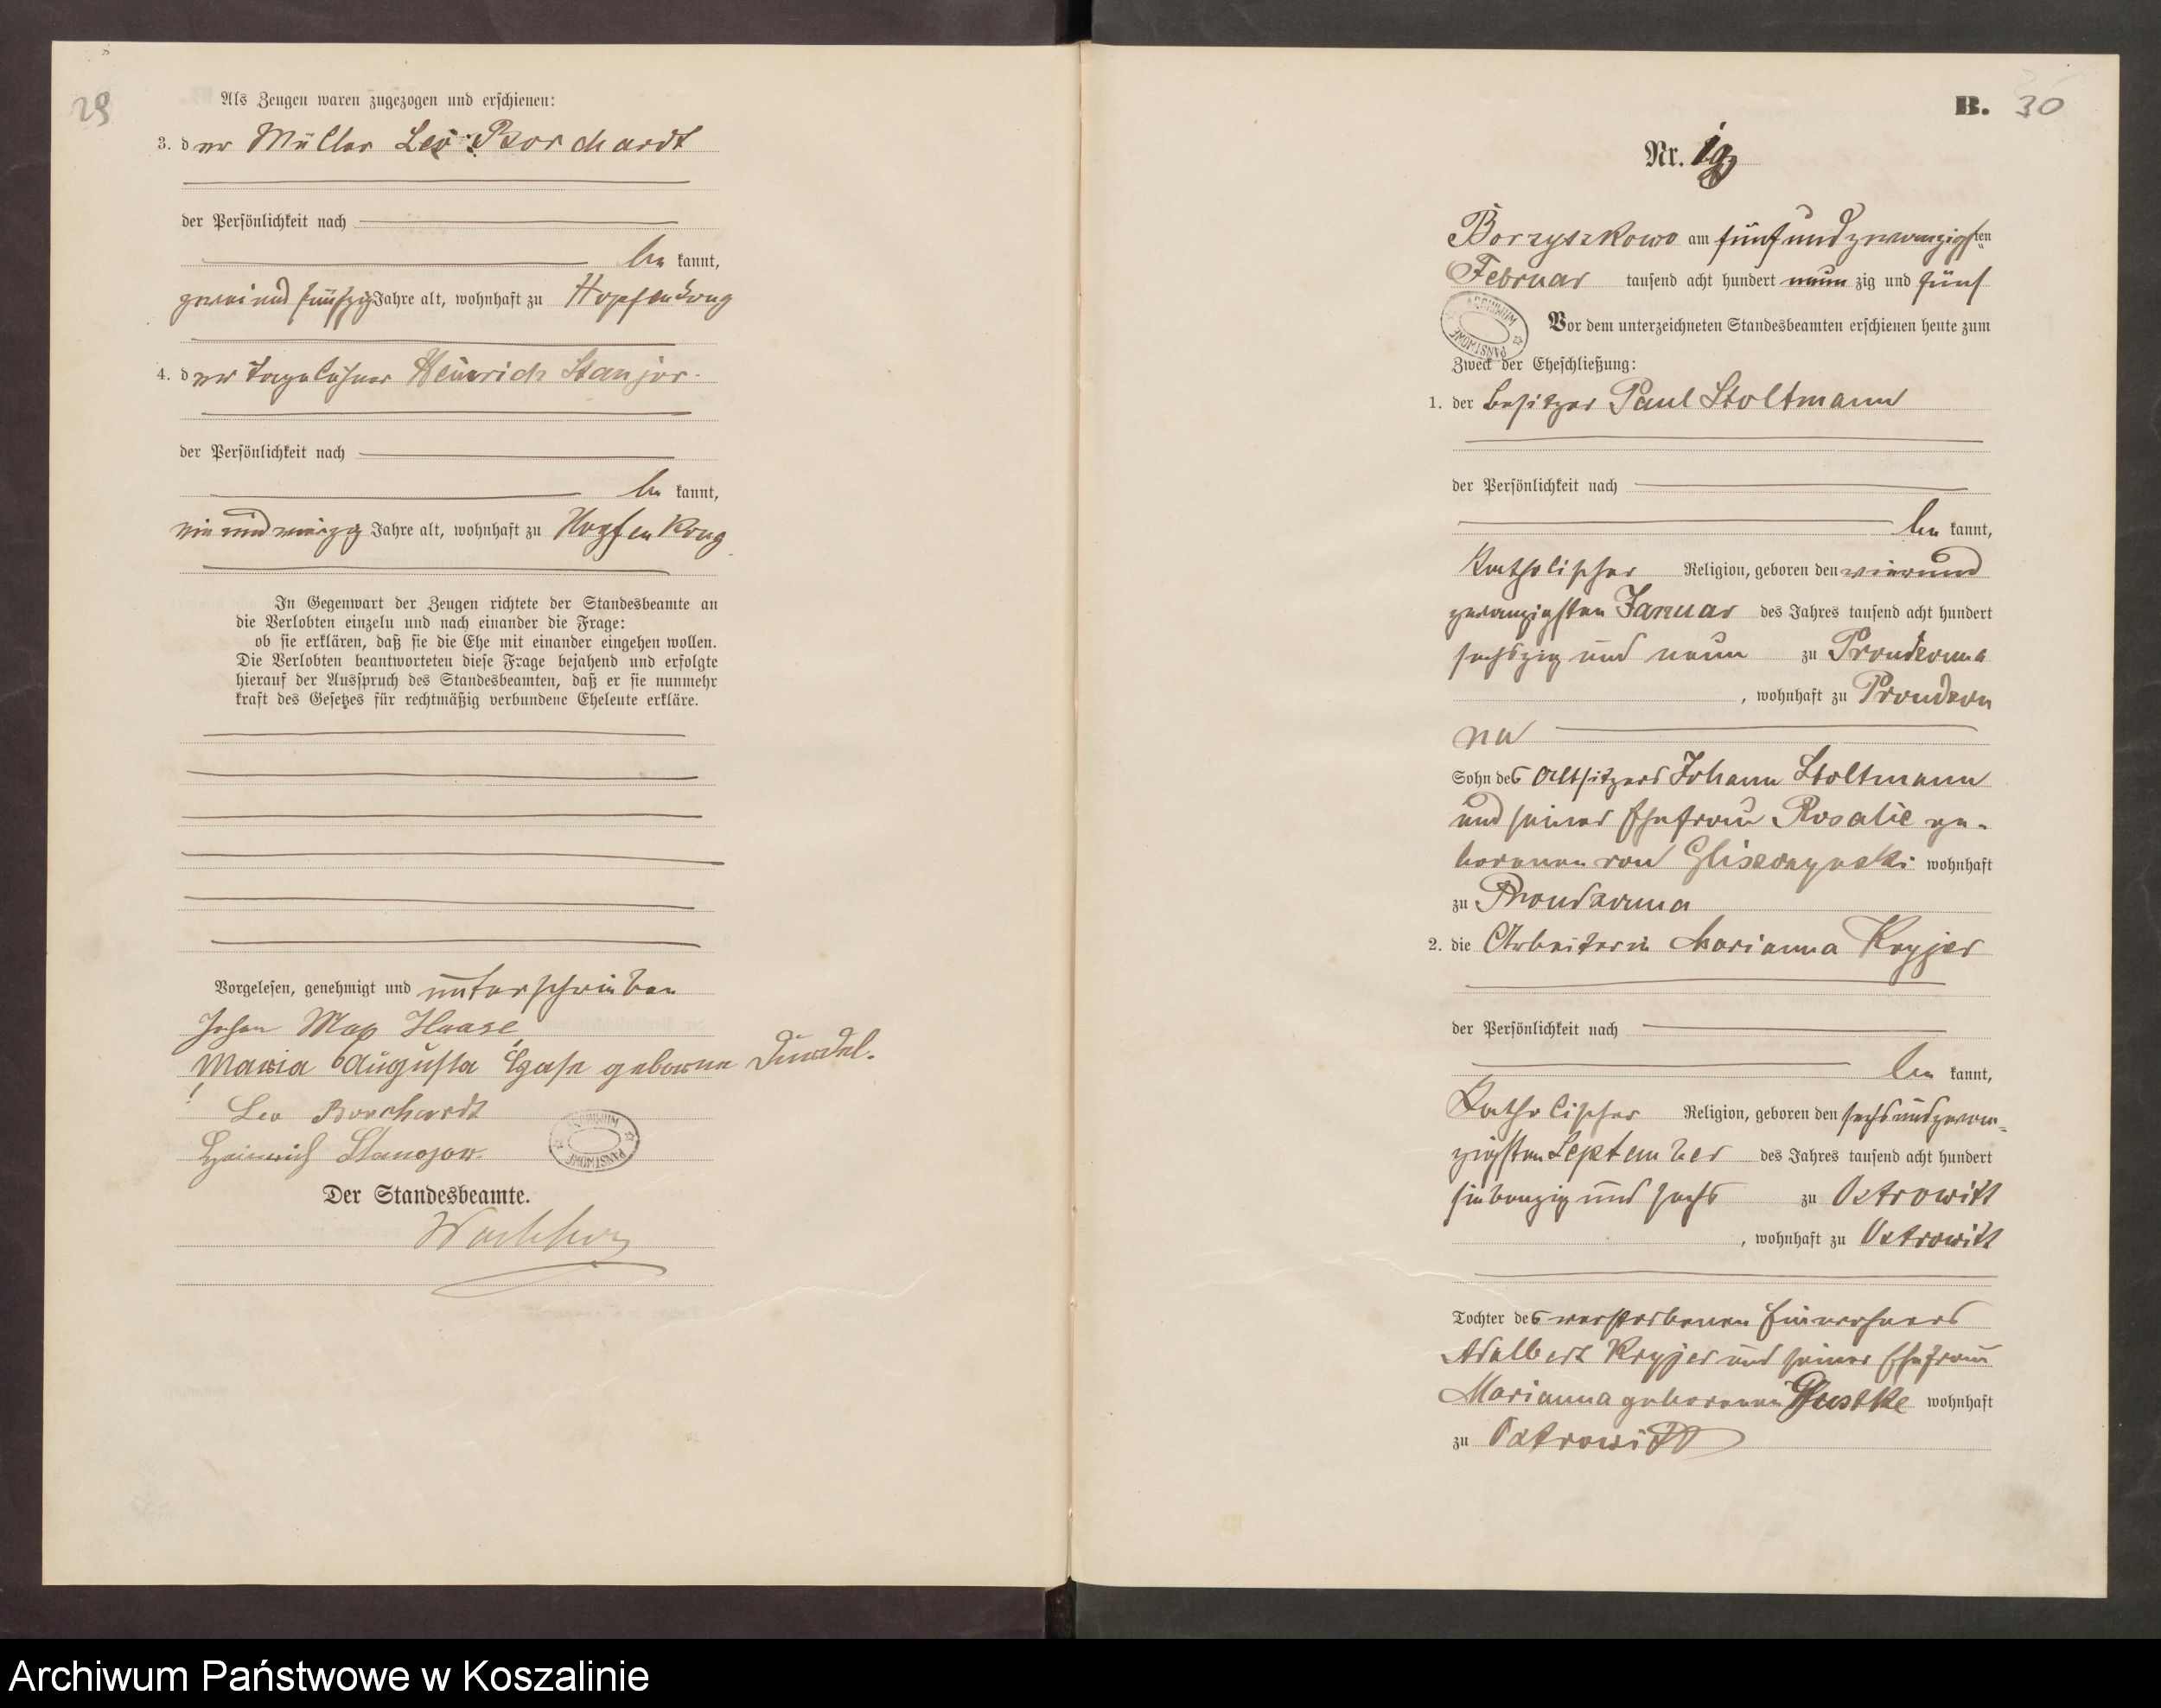 29
Als Zeugen waren zugezogen und erschienen:
3. der Müller Leo Borchardt
der Persönlichkeit nach
be kannt,
zwei und fünfzig Jahre alt, wohnhaft zu Hopfenkrug
4. der Tagelöhner Heinrich
der Persönlichkeit nach
be kannt,
ein und vierzig Jahre alt, wohnhaft zu Hopfenkrug
In Gegenwart der Zeugen richtete der Standesbeamte an
die Verlobten einzeln und nach einander die Frage:
ob sie erklären, daß sie die Ehe mit einander eingehen wollen.
Die Verlobten beantworteten diese Frage bejahend und erfolgte
hierauf der Ausspruch des Standesbeamten, daß er sie nunmehr
kraft des Gesetzes für rechtmäßig verbundene Eheleute erkläre.
Vorgelesen, genehmigt und unterschrieben
Johan Max Haase
Maria Augusta Hase geborne
Leo Borchardt
Heinrich
ARCHIWUM PAŃSTWOWE
Der Standesbeamte.
B. 30
Nr. 19
Borzyszkowo am fünfundzwanzigsten
Februar tausend acht hundert neun zig und fünf
ARCHIWUM PAŃSTWOWE
Vor dem unterzeichneten Standesbeamten erschienen heute zum
Zweck der Eheschließung:
1. der Besitzer Paul Stoltmann
der Persönlichkeit nach
be kannt,
katholischer Religion, geboren den vierund
zwanzigsten Januar des Jahres tausend acht hundert
sechszig und neun zu Prondzonna
, wohnhaft zu Prondzon
na
Sohn des Altsitzers Johann Stoltmann
und seiner Ehefrau Rosalie ge-
borenen von Gliszczynski wohnhaft
zu Prondzonna
2. die Arbeiterin Marianna Kryjer
der Persönlichkeit nach
be kannt,
katholischer Religion, geboren den sechsundzwan-
zigsten September des Jahres tausend acht hundert
siebenzig und sechs zu Ostrowitt
, wohnhaft zu Ostrowitt
Tochter des verstorbenen Einwohners
Adalbert Kryjer und seiner Ehefrau
Marianna geborenen wohnhaft
zu Ostrowitt
Archiwum Państwowe w Koszalinie